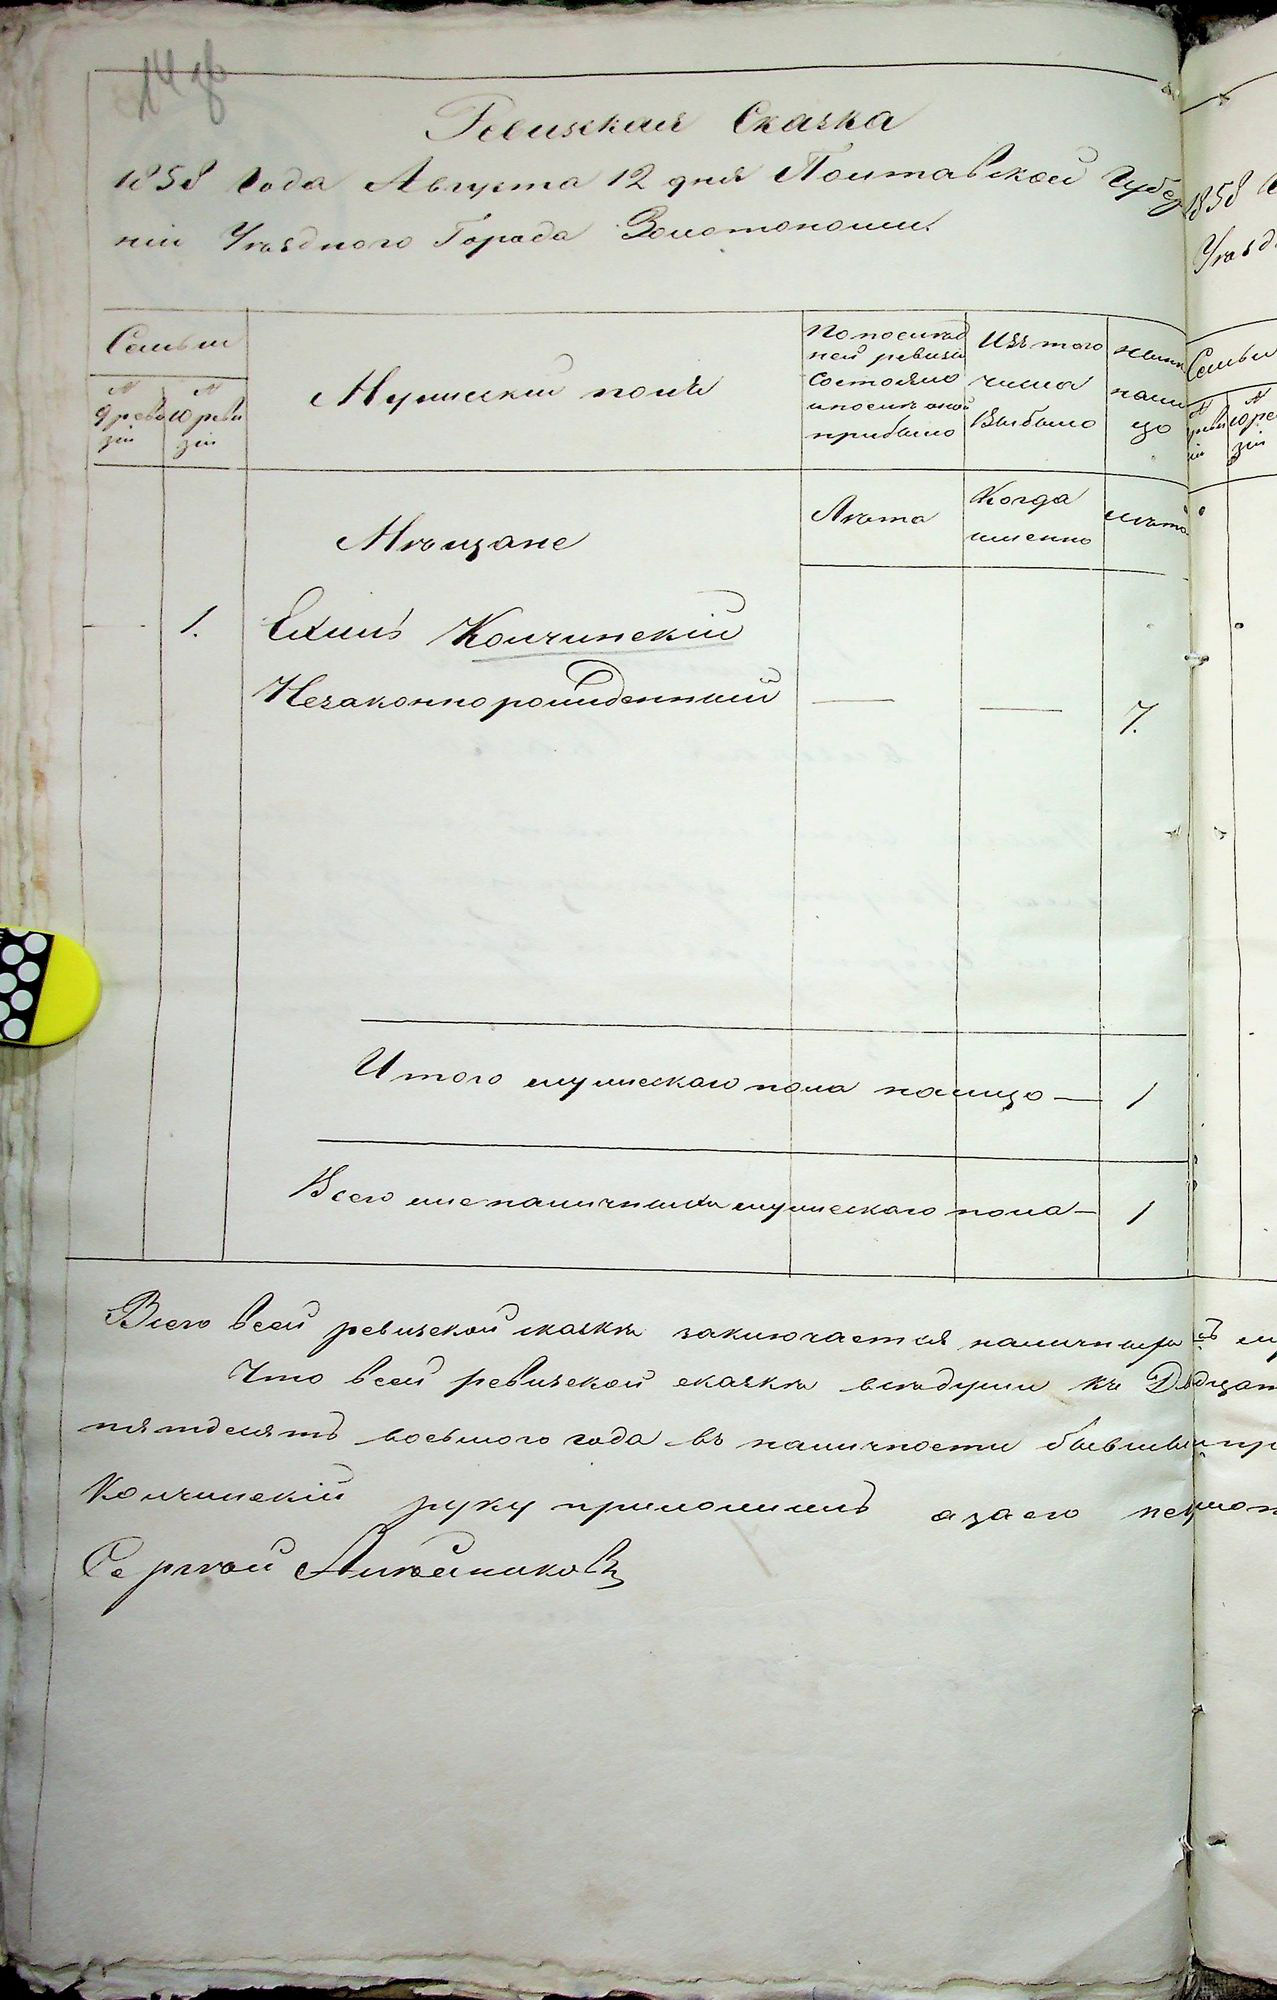 14 об
Ревизская Сказка
1858 Года Августа 12 дня Полтавской Губер
нiи Уѣзднаго Города Золотоноши.
Семьи
№ 9 ревизiи
№ 10 ревизiи
Мужескiй полъ
По послѣд
ней ревизiи
состояло
и послѣ оной
прибыло
Изъ того
числа
Выбыло
Нынѣ
нали
цо
Мѣщане
Лѣта
Когда
именно
Лѣта
1.
Ехимъ Колчинскiй
Незаконнорожденный
7.
Итого мужескаго пола налицо — 1
Всего же наличныхъ мужескаго пола — 1
Всего в сей ревизской сказкѣ заключается наличныхъ
Что в сей ревизской сказкѣ
пятдесятъ восьмого года въ наличности бывшiй
Колчинскiй руку приложилъ а за его
Сергѣй Алейниковъ
1858
Уѣзд
Семьи
№
№
10 ре
зiи